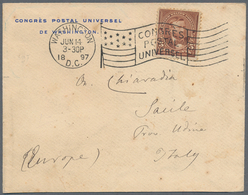 CONGRÈS POSTAL UNIVERSEL
DE WASHINGTON.
WASHINGTON
JUN 14
3-30P
18 97
D.C.
CONGRES
POSTAL
UNIVERSEL
On. Chiaradia
Sacile
Udine
(Europe) Italy